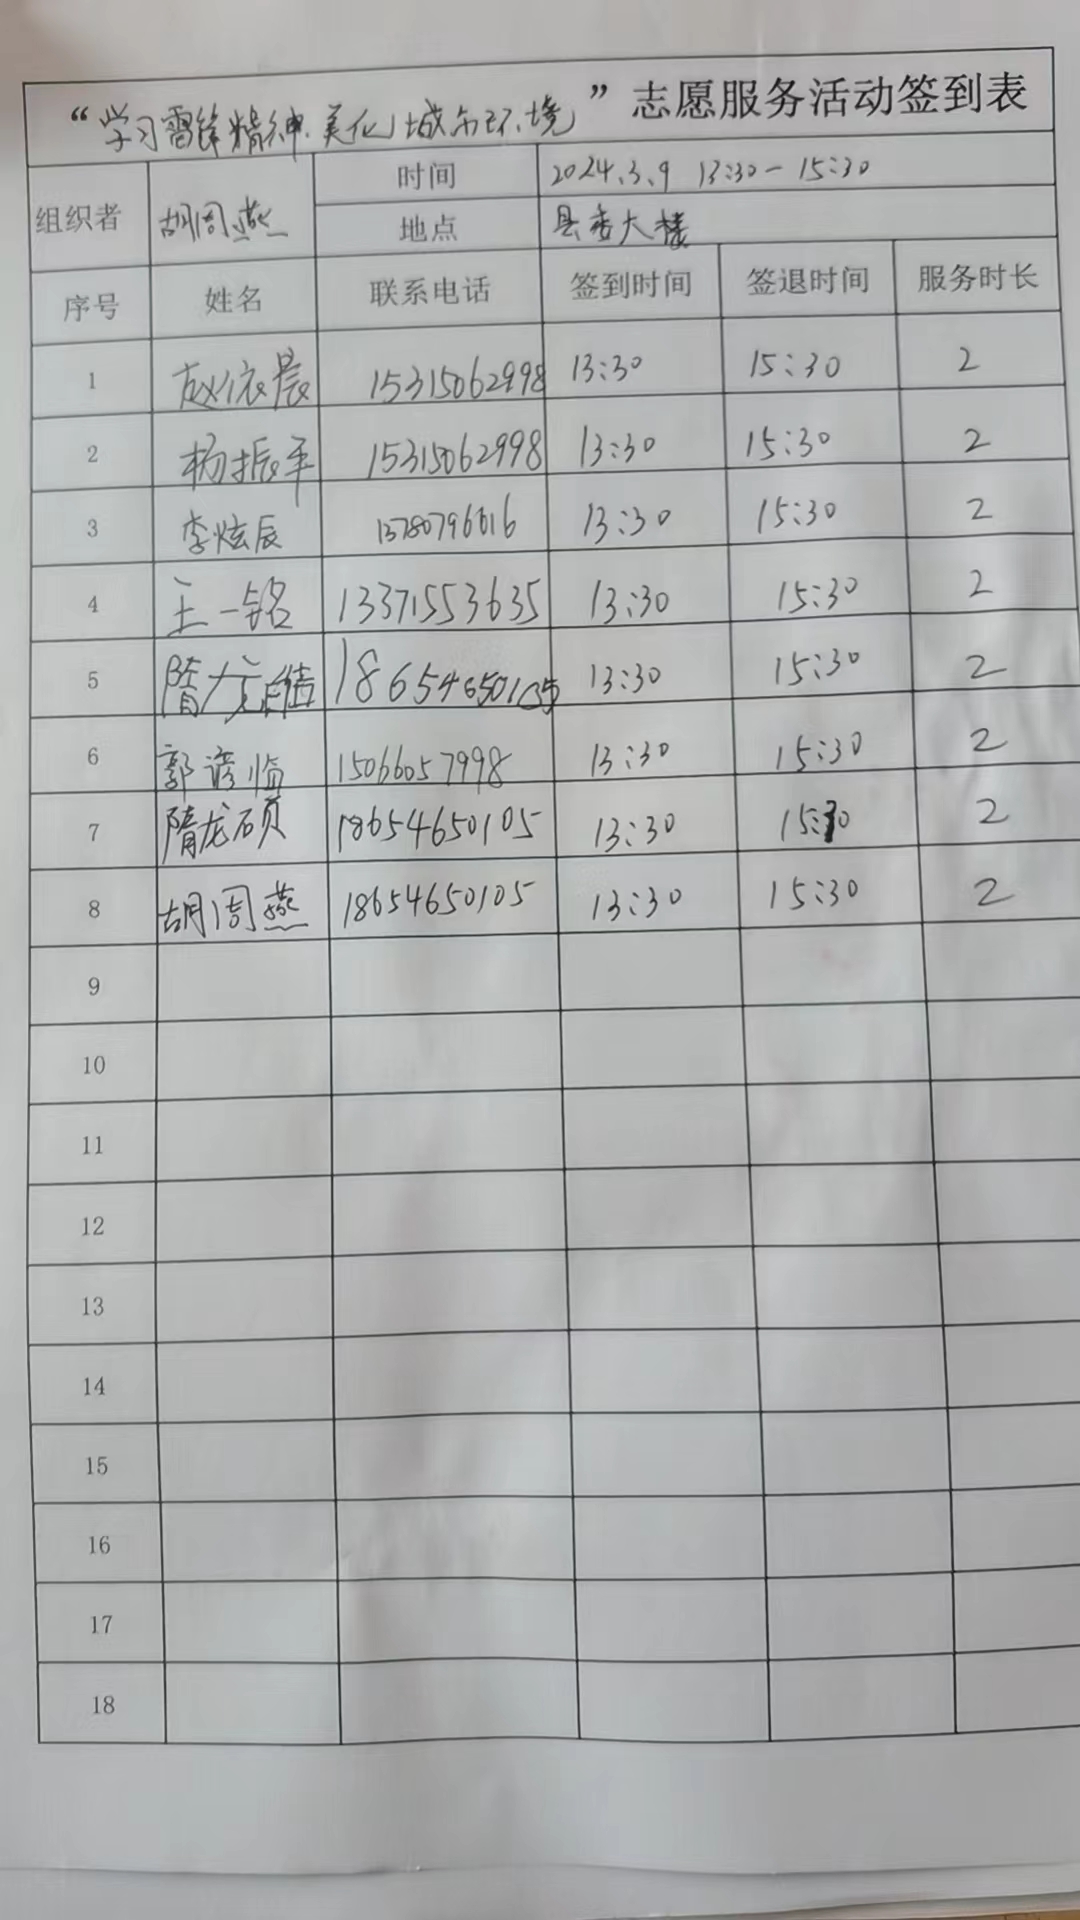 “学习雷锋精神.美化城市环境”志愿服务活动签到表
组织者 胡周燕 时间 2024.3.9 13:30-15:30
地点 县委大楼
序号 姓名 联系电话 签到时间 签退时间 服务时长
1 赵依晨 15315062998 13:30 15:30 2
2 杨振平 15315062998 13:30 15:30 2
3 李炫辰 13780796616 13:30 15:30 2
4 王一铭 13371553635 13:30 15:30 2
5 隋 18654650105 13:30 15:30 2
6 郭谚临 15066057998 13:30 15:30 2
7 隋龙硕 18654650105 13:30 15:30 2
8 胡周燕 18654650105 13:30 15:30 2
9
10
11
12
13
14
15
16
17
18